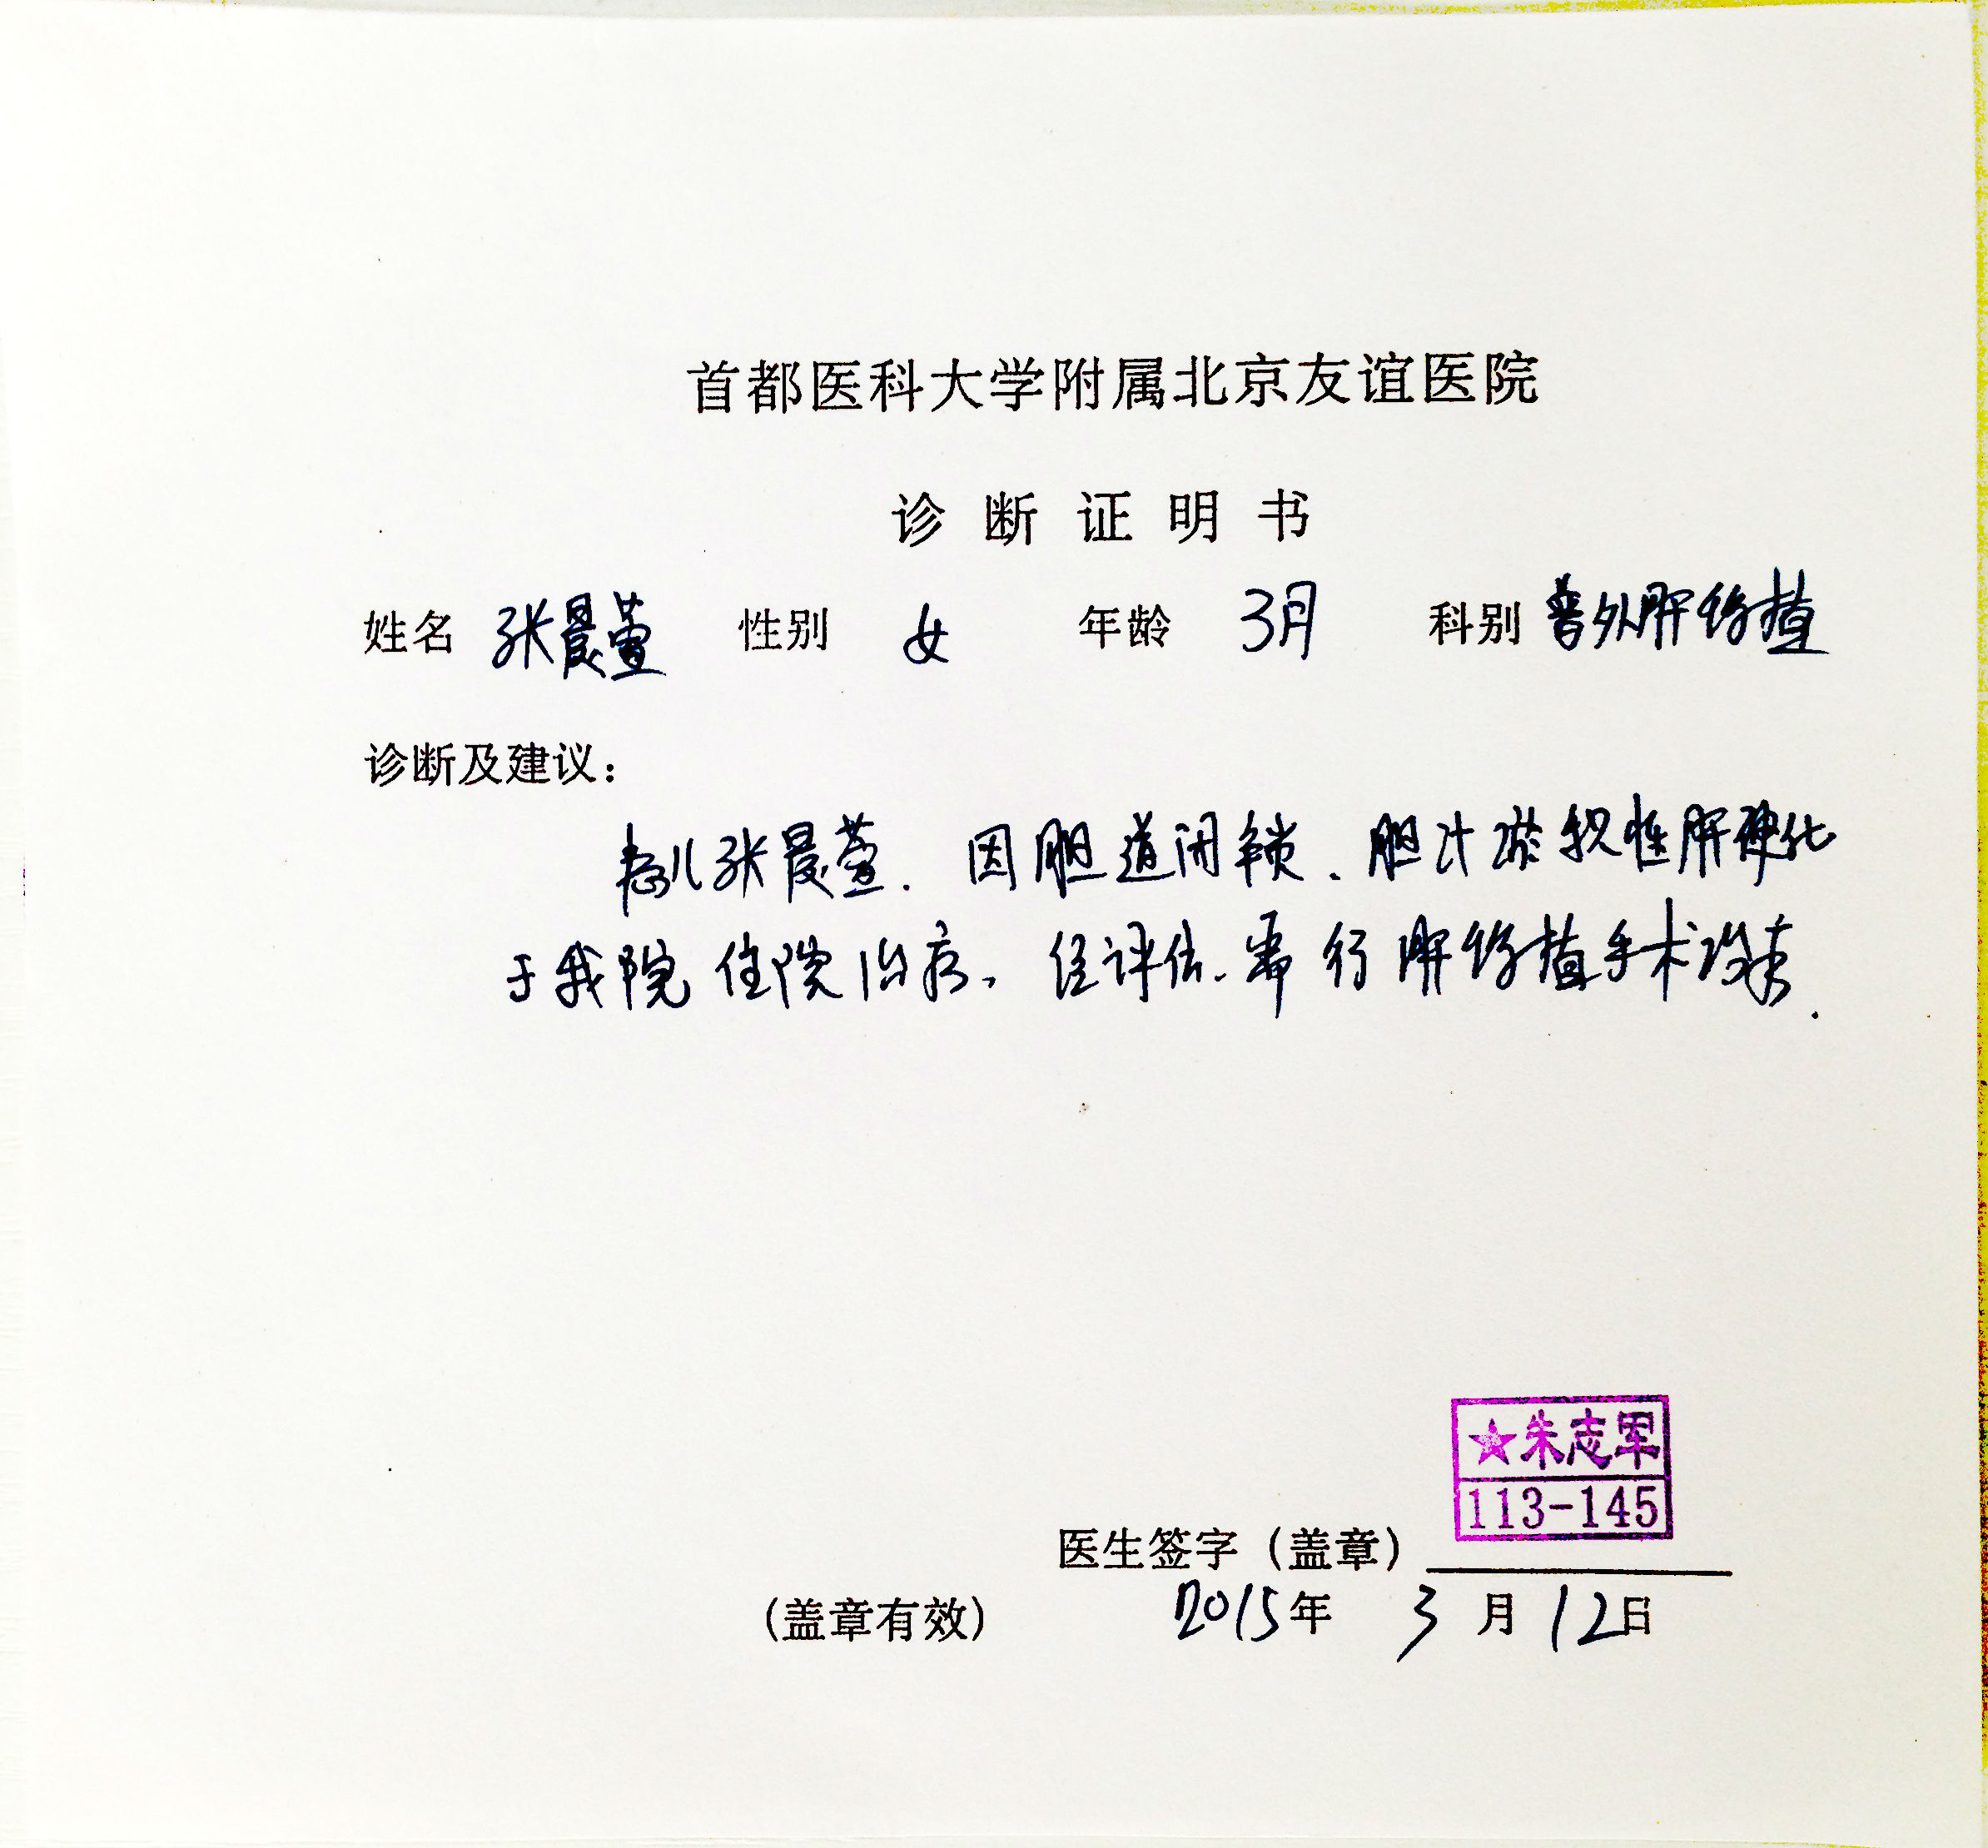 首都医科大学附属北京友谊医院
诊断证明书
姓名 张晨萱 性别 女 年龄 3月 科别 普外肝移植
诊断及建议：
患儿张晨萱. 因胆道闭锁、胆汁淤积性肝硬化
于我院住院治疗。经评估、需行肝移植手术
★朱志军
113-145
医生签字（盖章）
（盖章有效） 2015年 3月 12日